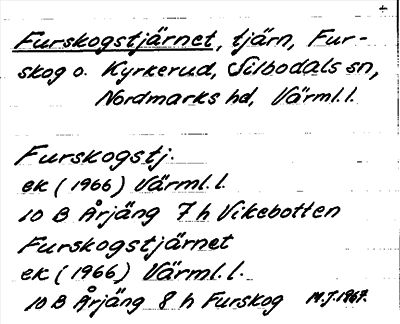 Furskogstjärnet, tjärn, Fur-
skog o. Kyrkerud, Silbodals sn,
Nordmarks hd, Värml. l.
Furskogstj.
ek (1966) Värml. l.
10 B Årjäng 7 h Vikebotten
Furskogstjärnet
ek (1966) Värml. l.
10 B Årjäng 8 h Furskog M.J. 1967.